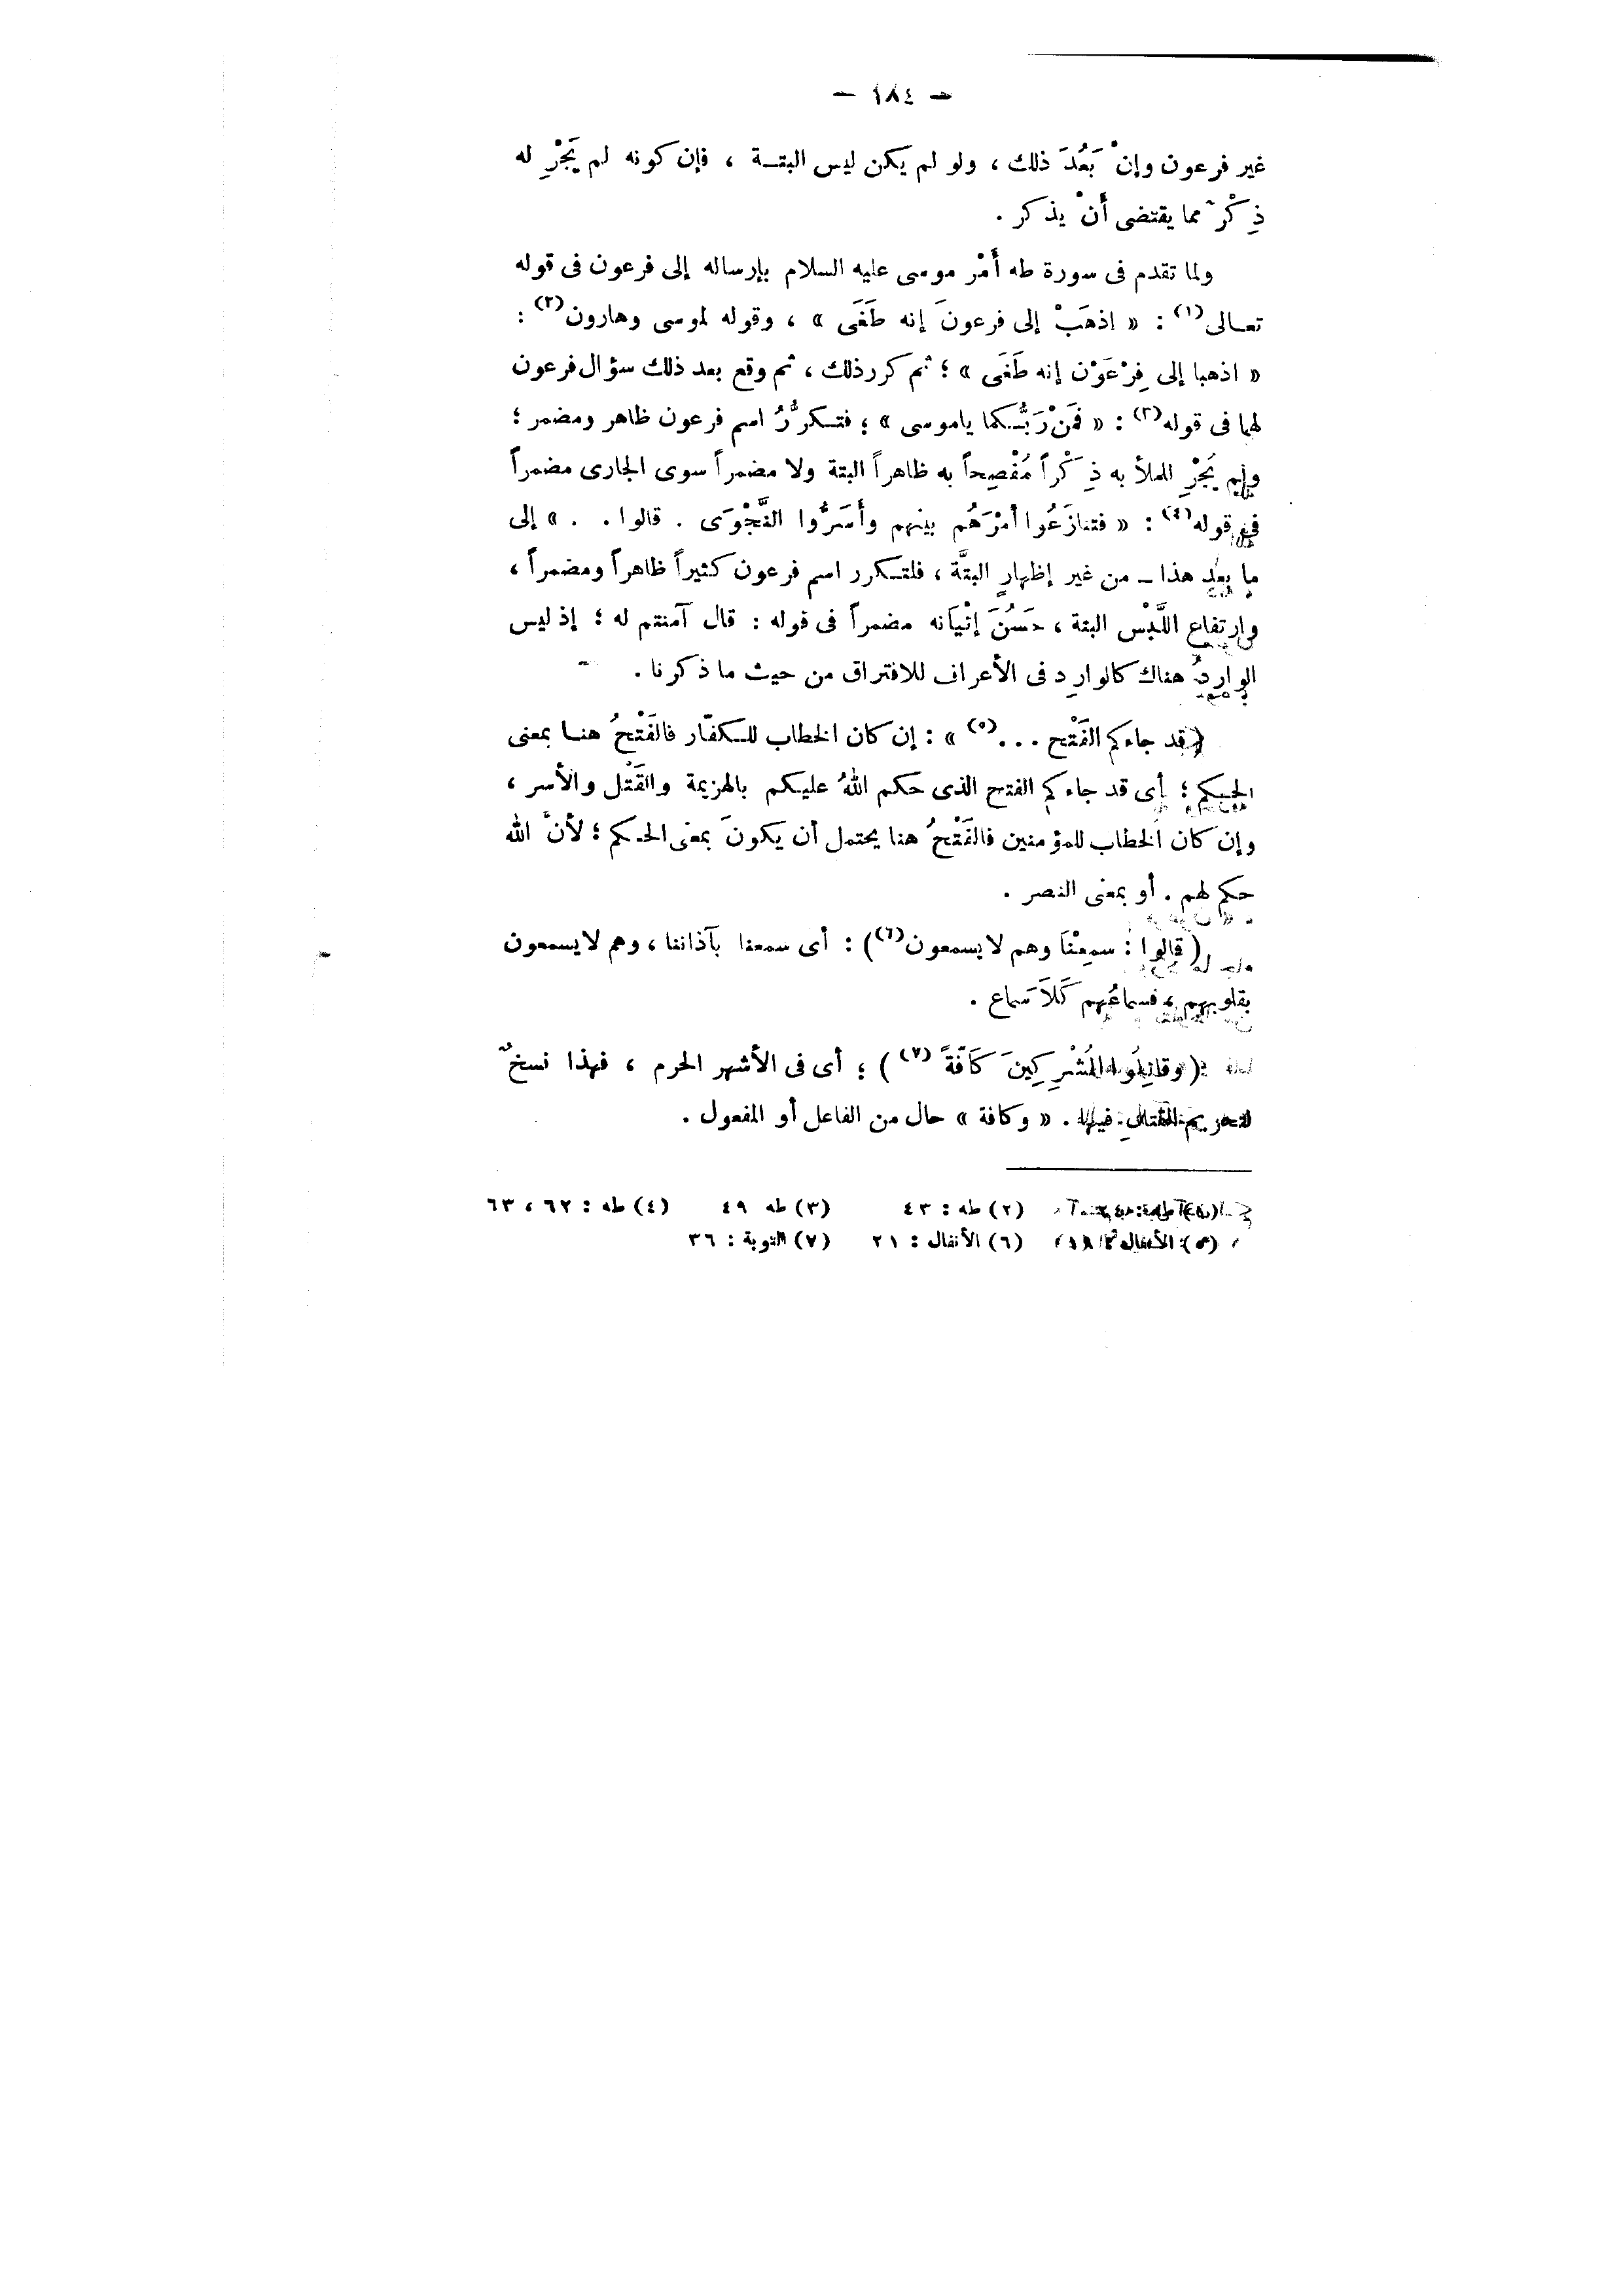 — ١٨٤ —
غير فرعون وإنْ بَعُدَ ذلك ، ولو لم يكن ليس البتــة ، فإن كونه لم يَجْرِ له
ذِكْر مما يقتضى أَنْ يذكر .
ولما تقدم فى سورة طه أَمْر موسى عليه السلام بإرساله إلى فرعون فى قوله
تعــالى(١) : « اذهَبْ إلى فرعونَ إنه طَغَى » ، وقوله لموسى وهارون(٢) :
« اذهبا إلى فِرْعَوْن إنه طَغَى » ؛ ثم كرر ذلك ، ثم وقع بعد ذلك سؤال فرعون
لهما فى قوله(٣) : « فَمَنْ رَبُّـكما ياموسى » ؛ فتـكرُّرُ اسم فرعون ظاهر ومضمر ؛
ولم يَجْرِ للملأ به ذِكْراً مُفْصِحاً به ظاهراً البتة ولا مضمراً سوى الجارى مضمراً
فى قوله(٤) : « فتنازَعُوا أمْرَهُم بينهم وأَسَرُّوا النَّجْوَى . قالوا . . » إلى
ما بعد هذا ــ من غير إظهارٍ البتَّة ، فلتـكرر اسم فرعون كثيراً ظاهراً ومضمراً ،
وارتفاع اللَّبْس البتة ، حَسُنَ إتْيَانه مضمراً فى قوله : قال آمنتم له ؛ إذ ليس
الواردُ هناك كالوارِد فى الأعراف للافتراق من حيث ما ذكرنا .
(قد جاءكم الفَتْح . . .(٥) » : إن كان الخطاب للـكفّار فالفَتْحُ هنــا بمعنى
الحـكم ؛ أى قد جاءكم الفتح الذى حكم اللهُ عليـكم بالهزيمة والقَتْل والأسر ،
وإن كان الخطاب للمؤمنين فالفَتْحُ هنا يحتمل أن يكونَ بمعنى الحـكم ؛ لأنَّ الله
حكم لهم . أو بمعنى النصر .
(قالوا : سمِعْنَا وهم لا يسمعون(٦)) : أى سمعنا بآذاننا ، وهم لا يسمعون
بقلوبهم ، فسماعُهم كَلَا سَماع .
(وقاتِلُوا المُشْرِكِينَ كَافّةً (٧) ) ؛ أى فى الأشهر الحرم ، فهذا نسخٌ
لتحريم القتالِ فيها . « وكافة » حال من الفاعل أو المفعول .
(٢) طه : ٤٣ (٣) طه ٤٩ (٤) طه : ٦٢ ، ٦٣
(٥) الأنفال (٦) الأنفال : ٢١ (٧) التوبة : ٣٦